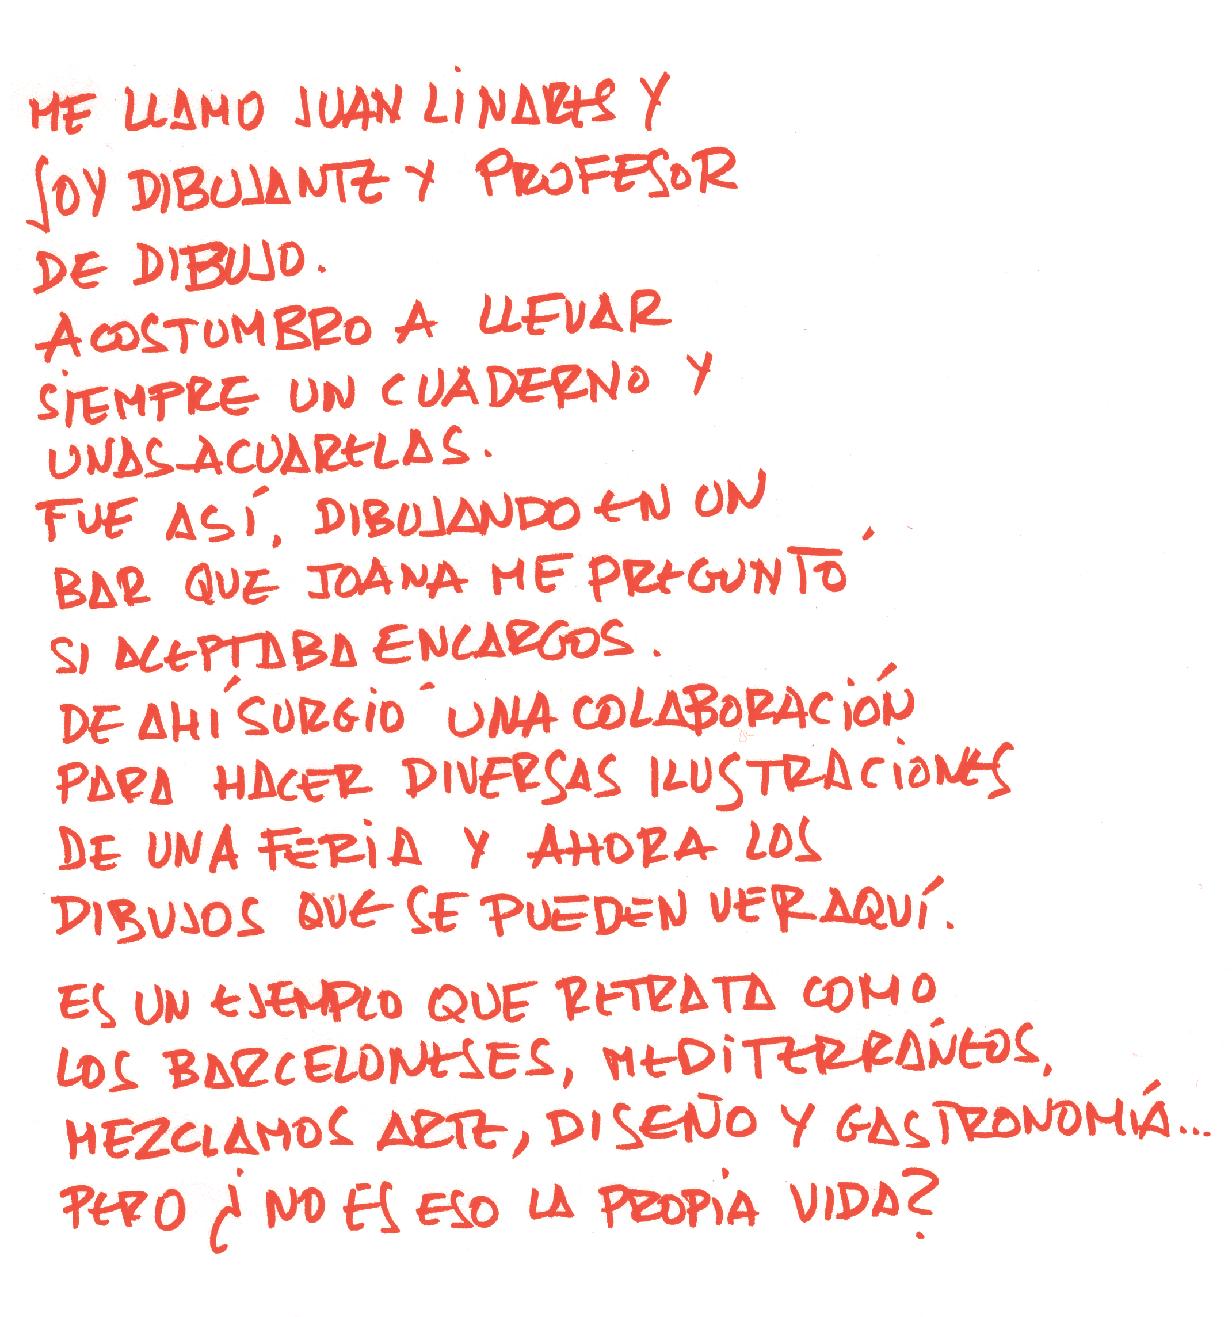 ME LLAMO JUAN LINARES Y
SOY DIBUJANTE Y PROFESOR
DE DIBUJO.
ACOSTUMBRO A LLEVAR
SIEMPRE UN CUADERNO Y
UNAS ACUARELAS.
FUE ASÍ, DIBUJANDO EN UN
BAR QUE JOANA ME PREGUNTÓ
SI ACEPTABA ENCARGOS.
DE AHÍ SURGIÓ UNA COLABORACIÓN
PARA HACER DIVERSAS ILUSTRACIONES
DE UNA FERIA Y AHORA LOS
DIBUJOS QUE SE PUEDEN VER AQUÍ.
ES UN EJEMPLO QUE RETRATA COMO
LOS BARCELONESES, MEDITERRÁNEOS,
MEZCLAMOS ARTE, DISEÑO Y GASTRONOMÍA...
PERO ¿NO ES ESO LA PROPIA VIDA?